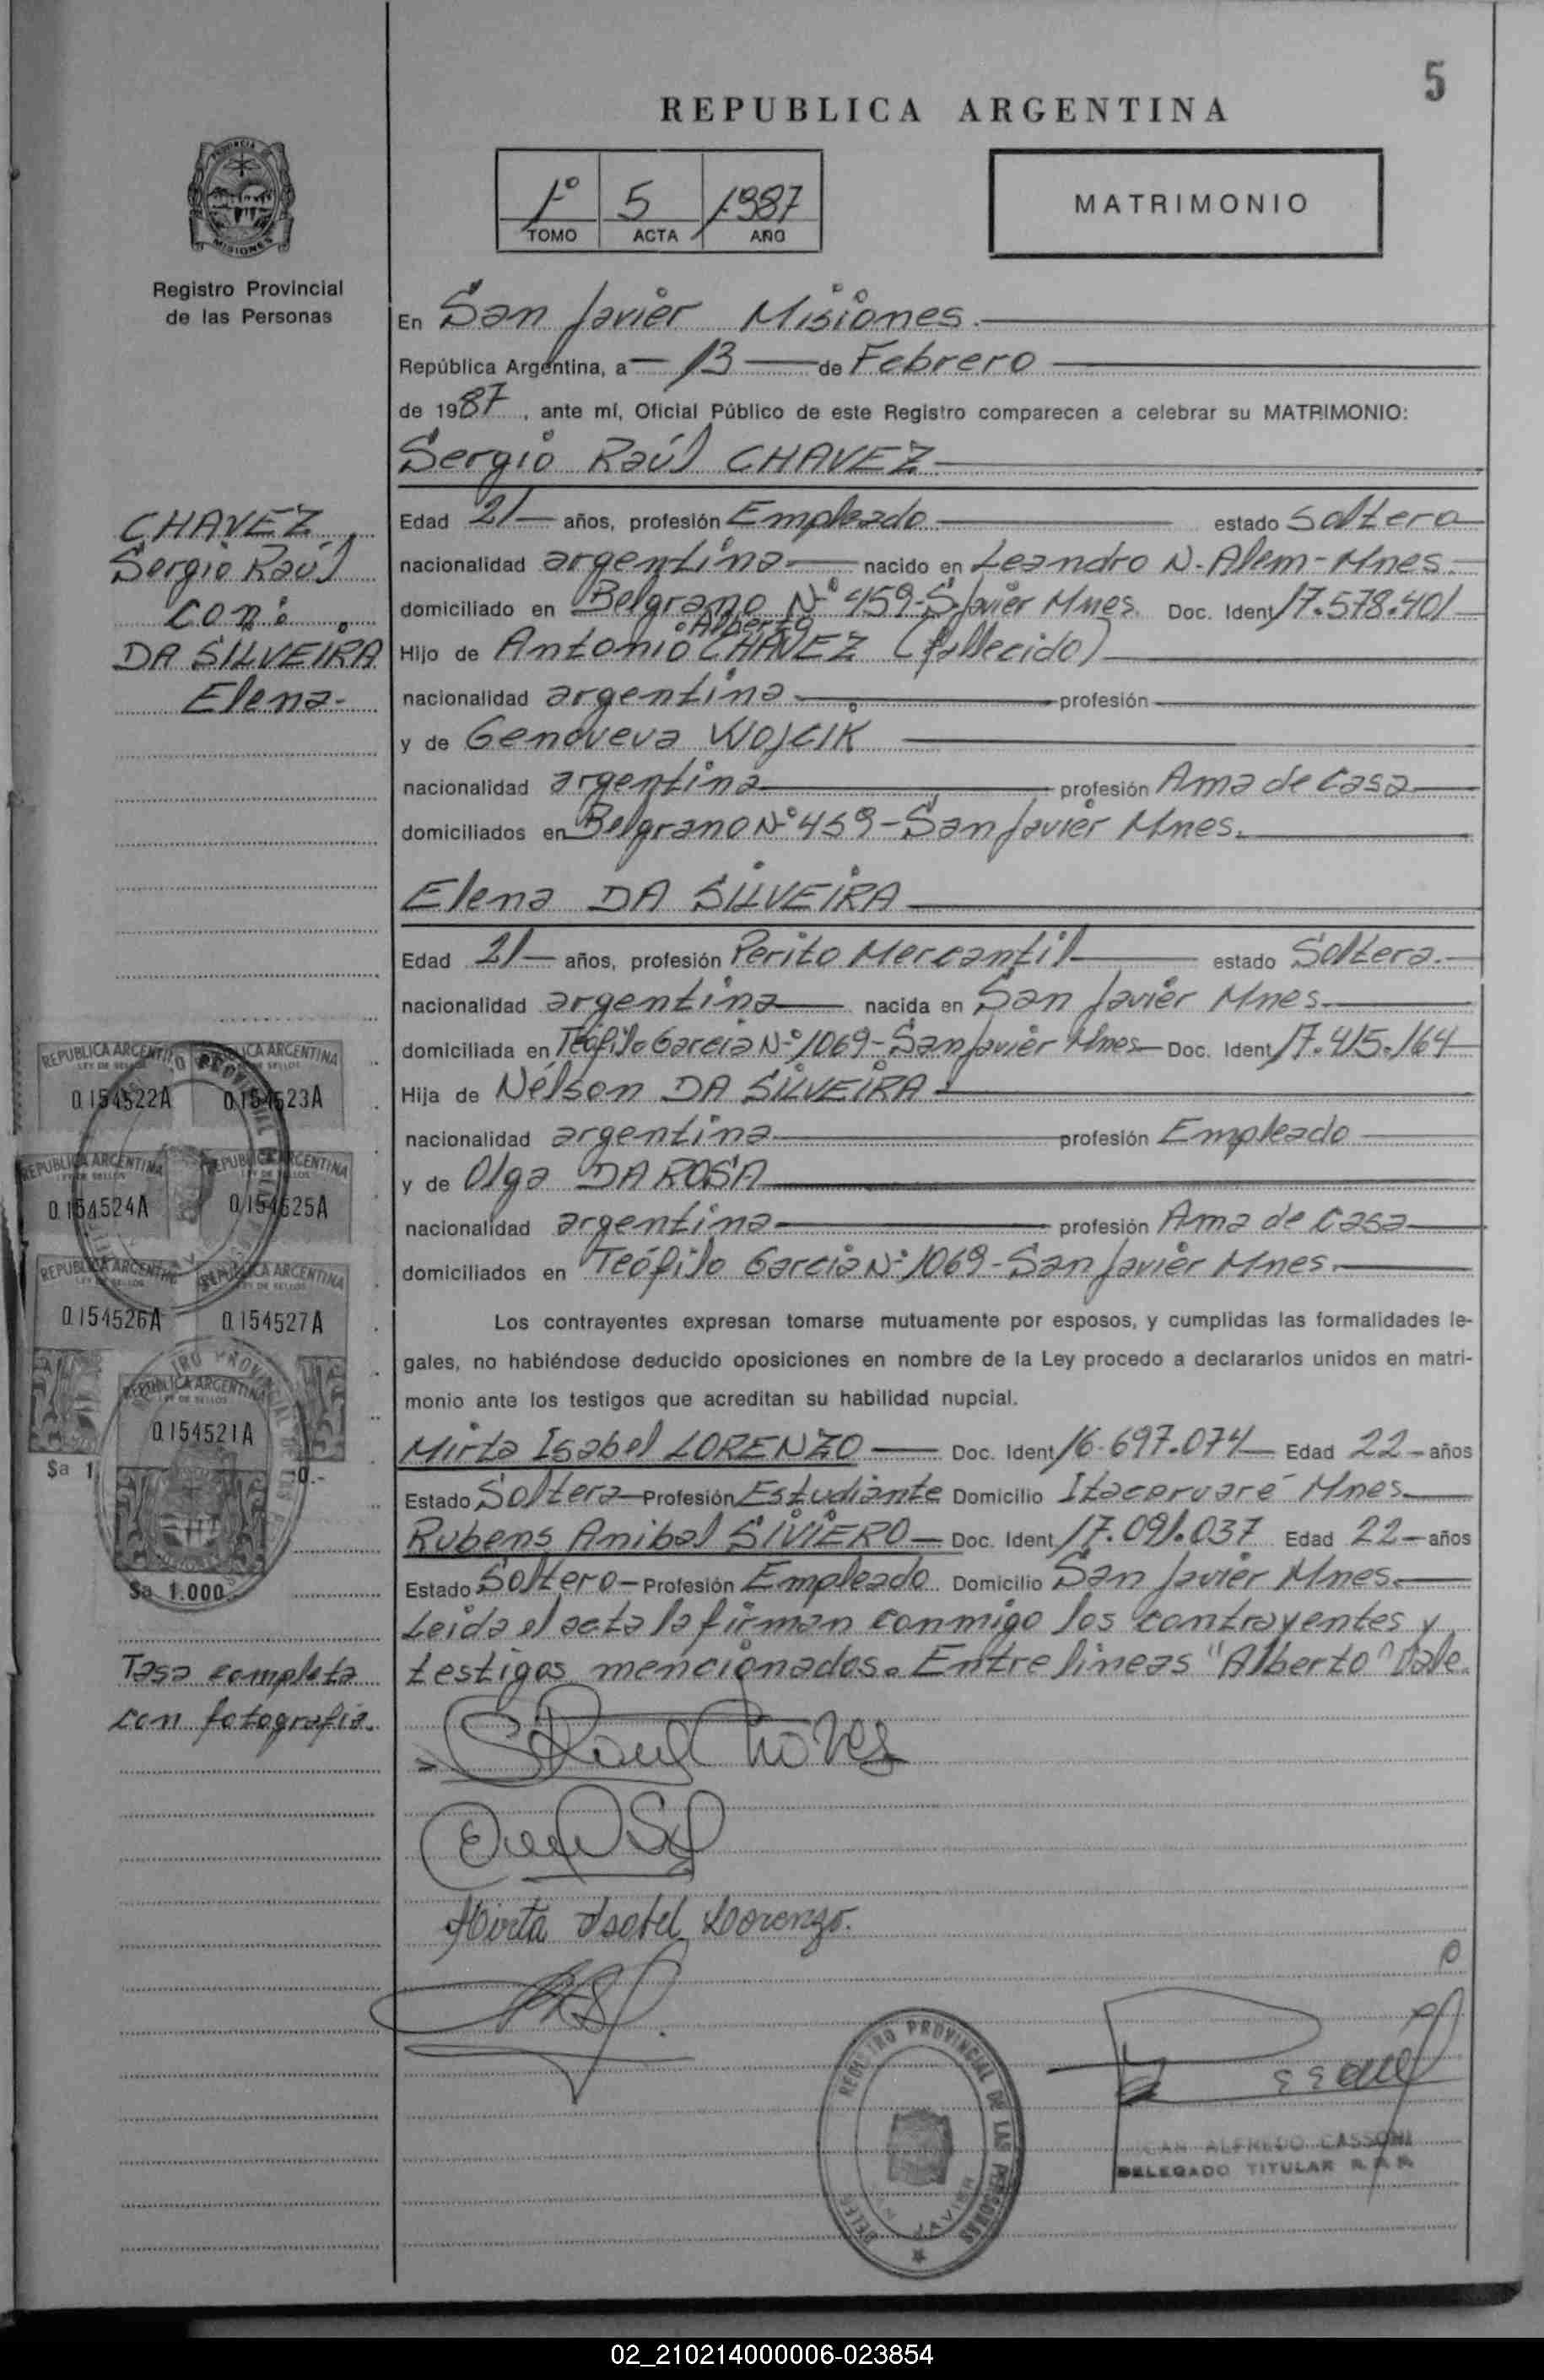 5
REPUBLICA ARGENTINA
1º 5 1987
TOMO ACTA AÑO
MATRIMONIO
PROVINCIA
MISIONES
Registro Provincial
de las Personas
En San Javier Misiones.
República Argentina, a 13 de Febrero
de 1987, ante mí, Oficial Público de este Registro comparecen a celebrar su MATRIMONIO:
Sergio Raúl CHAVEZ
CHAVEZ
Sergio Raúl
con:
DA SILVEIRA
Elena-
Edad 21 años, profesión Empleado estado Soltero
nacionalidad argentina nacido en Leandro N. Alem-Mnes.
domiciliado en Belgrano Nº 459-S. Javier Mnes. Doc. Ident 17.578.401
Alberto
Hijo de Antonio CHAVEZ (fallecido)
nacionalidad argentina profesión
y de Genoveva WOJCIK
nacionalidad argentina profesión Ama de casa
domiciliados en Belgrano Nº 459-San Javier Mnes.
Elena DA SILVEIRA
Edad 21 años, profesión Perito Mercantil estado Soltera.
nacionalidad argentina nacida en San Javier Mnes.
domiciliada en Teófilo García Nº 1069-San Javier Mnes Doc. Ident 17.415.164
Hija de Nélson DA SILVEIRA
nacionalidad argentina profesión Empleado
y de Olga DA ROSA
nacionalidad argentina profesión Ama de casa
domiciliados en Teófilo García Nº 1069-San Javier Mnes.
Los contrayentes expresan tomarse mutuamente por esposos, y cumplidas las formalidades le-
gales, no habiéndose deducido oposiciones en nombre de la Ley procedo a declararlos unidos en matri-
monio ante los testigos que acreditan su habilidad nupcial.
Mirta Isabel LORENZO Doc. Ident 16.697.074 Edad 22 años
Estado Soltera Profesión Estudiante Domicilio Itacaruaré Mnes.
Rubens Anibal SIVIERO Doc. Ident 17.091.037 Edad 22 años
Estado Soltero Profesión Empleado Domicilio San Javier Mnes.
Leída el acta la firman conmigo los contrayentes y
testigos mencionados. Entre lineas "Alberto" Vale.
REPUBLICA ARGENTINA
LEY DE SELLOS
0.154522A 0.154523A
REPUBLICA ARGENTINA
0.154524A 0.154525A
REPUBLICA ARGENTINA
0.154526A 0.154527A
REPUBLICA ARGENTINA
LEY DE SELLOS
0.154521A
$a 1.000
Tasa completa
con fotografia.
Mirta Isabel Lorenzo.
REGISTRO PROVINCIAL DE LAS PERSONAS
JAVIER
ALFREDO CASSONI
DELEGADO TITULAR
02_210214000006-023854